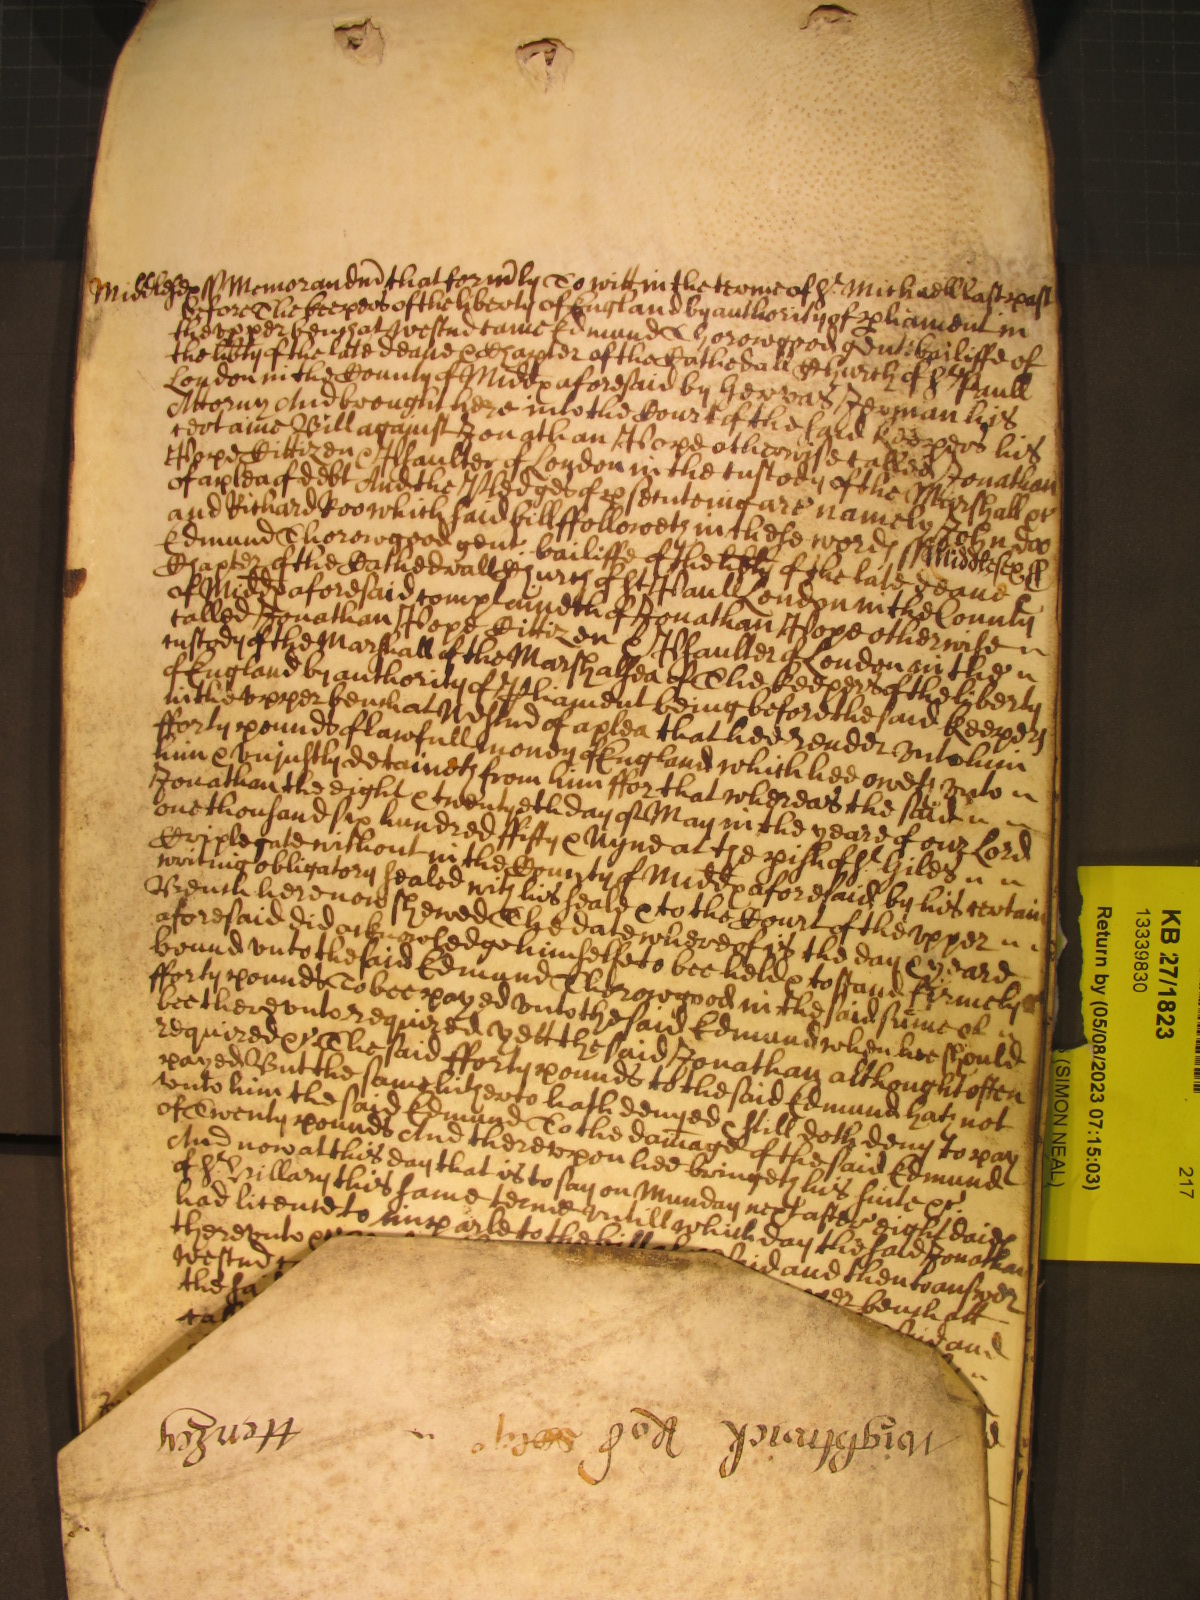 Middlesex ss Memorandm that formly To witt in the terme of St. Michaell last past
before The keepers of the liberty of England by authority of pliament in
the vpper bench at Westmr came Edmund Thorowgood gent bailiffe of
the libty of the late deane & Chapter of the Cathedall Church of St. Paull
London in the County of Middx aforesaid by Gervas Jerman his
Attorny And brought here into the Court of the said keepers his
certaine Bill against Jonathan Pope otherwise called Jonathan
Pope Cittizen & Psaulter of London in the custody of the Marshall &c
of a plea of debt And the Pledges of psecuteing are namely John Doo
and Richard Roo which said bill ffolloweth in these words ss Middlesex ss
Edmund Thorowgood gent bailiffe of the libty of the late deane &
Chapter of the Cathedrall Church of St Paull London in the County
of Middx aforesaid complaineth of Jonathan Pope otherwise
called Jonathan Pope Cittizen & Psaulter of London in the
custody of the Marshall of the Marshalsea of The keepers of the liberty
of England by authority of Pliament being before the said keepers
in the vpper bench at Westmr of a plea that hee render vnto him
fforty pounds of lawfull money of England which hee oweth vnto
him & vnjustly detaineth from him ffor that whereas the said
Jonathan the eight & twentyeth day of May in the yeare of our Lord
one thousand six hundred ffifty & Nyne at the pish of St. Giles
Criplegate without in the County of Middx aforesaid by his certain
writing obligatory sealed with his seale & to the Court of the vpper
Bench here now shewed The date whereof is the day & yeare
aforesaid did acknowledge himselfe to bee held & to stand firmely
bound vnto the said Edmund Thorowgood in the said sume of
fforty pounds To bee payed vnto the said Edmund when hee should
bee therevnto required yett the said Jonathan althought often
required &c The said fforty pounds to the said Edmund hath not
payed But the same hitherto hath denyed & still doth deny to pay
vnto him the said Edmund To the damage of the said Edmund
of Twenty pounds And therevpon hee bringeth his suite &c.
And now at this day that is to say on Munday next after eight daies
of St. Hillary this same terme vntill which day the said Jonathan
had licence to imparle to the bill aforesaid and then to answer
therevnto &c bench att
Westmr said and
the sai
Wightwick Rob
Henley
KB 27/1823
13339830
Return by (05/08/2023 07:15:03)
217
(SIMON NEAL)